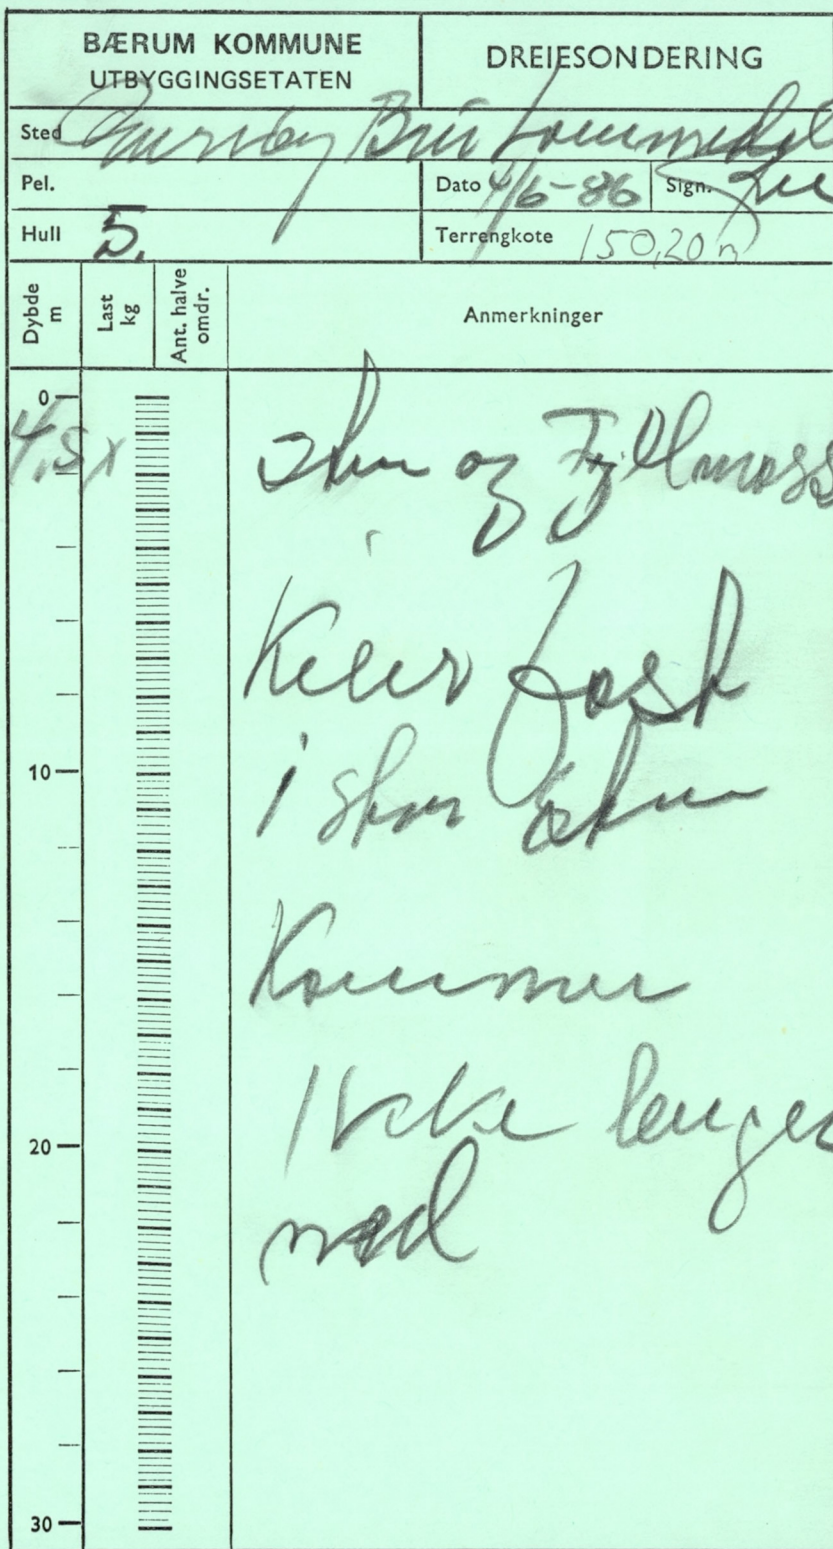 BÆRUM KOMMUNE
UTBYGGINGSETATEN
DREIESONDERING
Sted Bru Lommedal
Pel.
Dato 4/6-86 Sign.
Hull 5.
Terrengkote 150,20 m
Dybde m
Last kg
Ant. halve omdr.
Anmerkninger
0
4,5 x
Sten og Fyllmass
Kiler fast
i stor sten
10
Kommer
Ikke lenger
20
ned
30